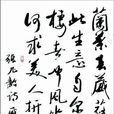 蘭葉春葳
此生意自爾
棲者聞風
何求美人折
張九齡詩